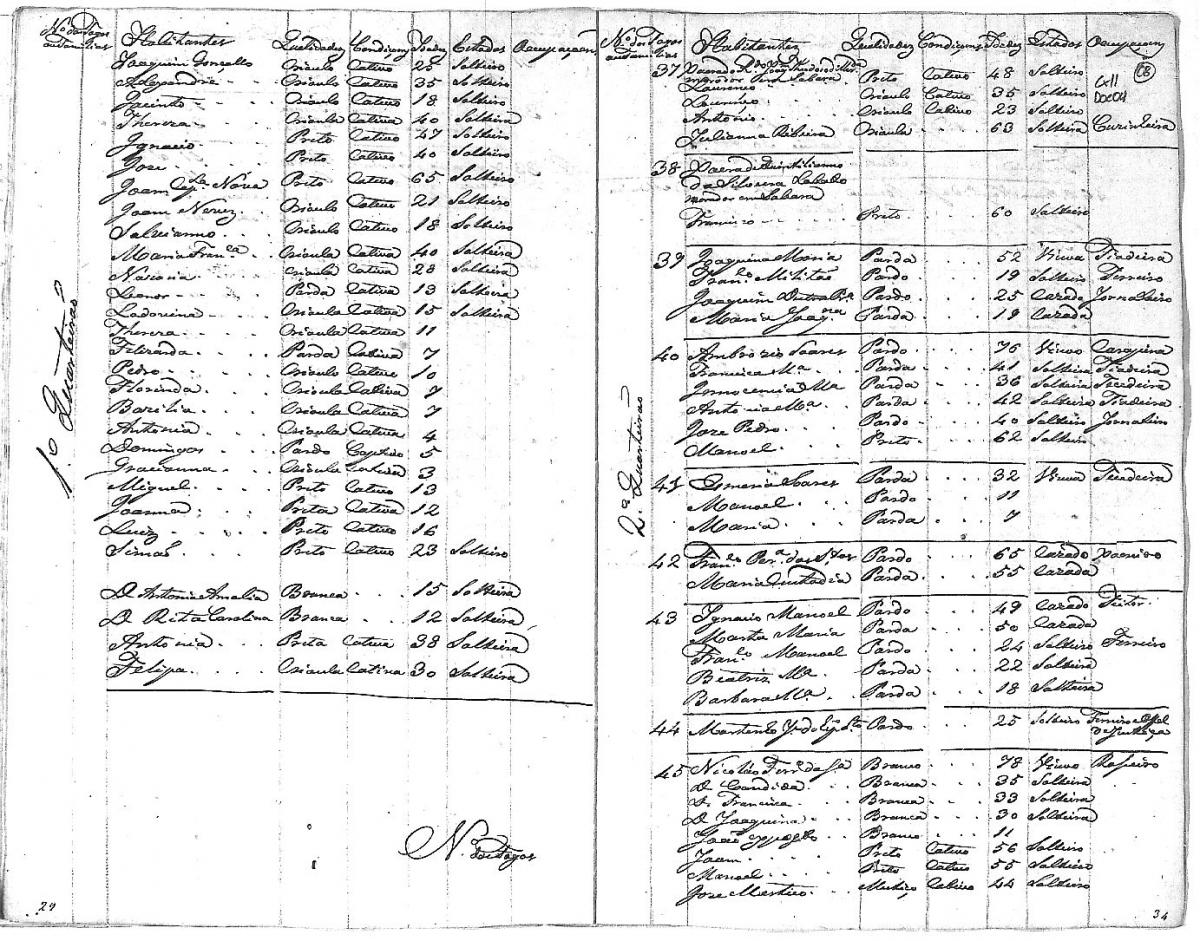 Nº dos Fogos Habitantes Qualidades Condiçoens Idades Estados Ocupaçoens
ou Familias
Joaquim Gonsallo Crioulo Cativo 25 Solteiro
Alexandre Crioulo Cativo 35 Solteiro
Jacinto Crioulo Cativo 18 Solteiro
Thereza Crioula Cativa 40 Solteira
Ignacio Preto Cativo 47 Solteiro
Jose Preto Cativo 40 Solteiro
Joam Preto Cativo 65 Solteiro
Joam Nunez Crioulo Cativo 21 Solteiro
Salvianno Crioulo Cativo 18 Solteiro
Maria Franca Crioula Cativa 40 Solteira
Crioula Cativa 28 Solteira
Leonor Parda Cativa 13 Solteira
Ladovina Crioula Cativa 15 Solteira
Thereza Crioula Cativa 11
Felizarda Parda Cativa 7
Pedro Crioulo Cativo 10
Florinda Crioula Cativa 7
Bazilia Crioula Cativa 7
Antonia Crioula Cativa 4
Domingos Pardo 5
Gracianna Crioula Cativa 3
Miguel Preto Cativo 13
Joanna Preta Cativa 12
Luiz Preto Cativo 16
Simaõ Preto Cativo 23 Solteiro
D. Antonia Amalia Branca 15 Solteira
D. Rita Carolina Branca 12 Solteira
Antonia Preta Cativa 38 Solteira
Felipa Crioula Cativa 30 Solteira
1.o Quarteiraõ
N. dos Fogos
29
Nº dos Fogos Habitantes Qualidades Condiçoens Idades Estados Ocupaçoens
ou Familias
08
Cx11
Doc04
37
morador Sabara Preto Cativo 48 Solteiro
Lourenço Crioulo Cativo 35 Solteiro
Antonio Crioulo Cativo 23 Solteiro
Julianna Ribeira Crioula 63 Solteira Cuzinheira
38 Quintilianno
da Silveira
morador em Sabara
Francisco Preto 60 Solteiro
2.o Quarteiraõ
39 Joaquina Maria Parda 52 Viuva Fiadeira
Franco Militaõ Pardo 19 Solteiro Ferreiro
Joaquim Pardo 25 Cazado Jornaleiro
Maria Joaqna Parda 19 Cazada
40 Ambrozio Soares Pardo 76 Viuvo
Francisca Ma Parda 41 Solteira Fiadeira
Innocencia Ma Parda 36 Solteira Tecedeira
Antonia Ma Parda 42 Solteira Fiadeira
Joze Pedro Pardo 40 Solteiro Jornaleiro
Manoel Preto 62 Solteiro
41 Soares Parda 32 Viuva Tecedeira
Manoel Pardo 11
Maria Parda 7
42 Franco Pera dos Stos Pardo 65 Cazado
Maria Custodia Parda 55 Cazada
43 Ignacio Manoel Pardo 49 Cazado Feitor
Marta Maria Parda 50 Cazada
Franco Manoel Pardo 24 Solteiro Ferreiro
Beatriz Ma Parda 22 Solteira
Barbara Ma Parda 18 Solteira
44 Pardo 25 Solteiro Ferreiro
45 Nicoláo Ferra da Sa Branco 78 Viuvo
D. Candida Branca 35 Solteira
D. Francisca Branca 33 Solteira
D. Joaquina Branca 30 Solteira
Joaõ Branco 11
Joam Preto Cativo 56 Solteiro
Manoel Preto Cativo 55 Solteiro
Joze Cativo 44 Solteiro
34